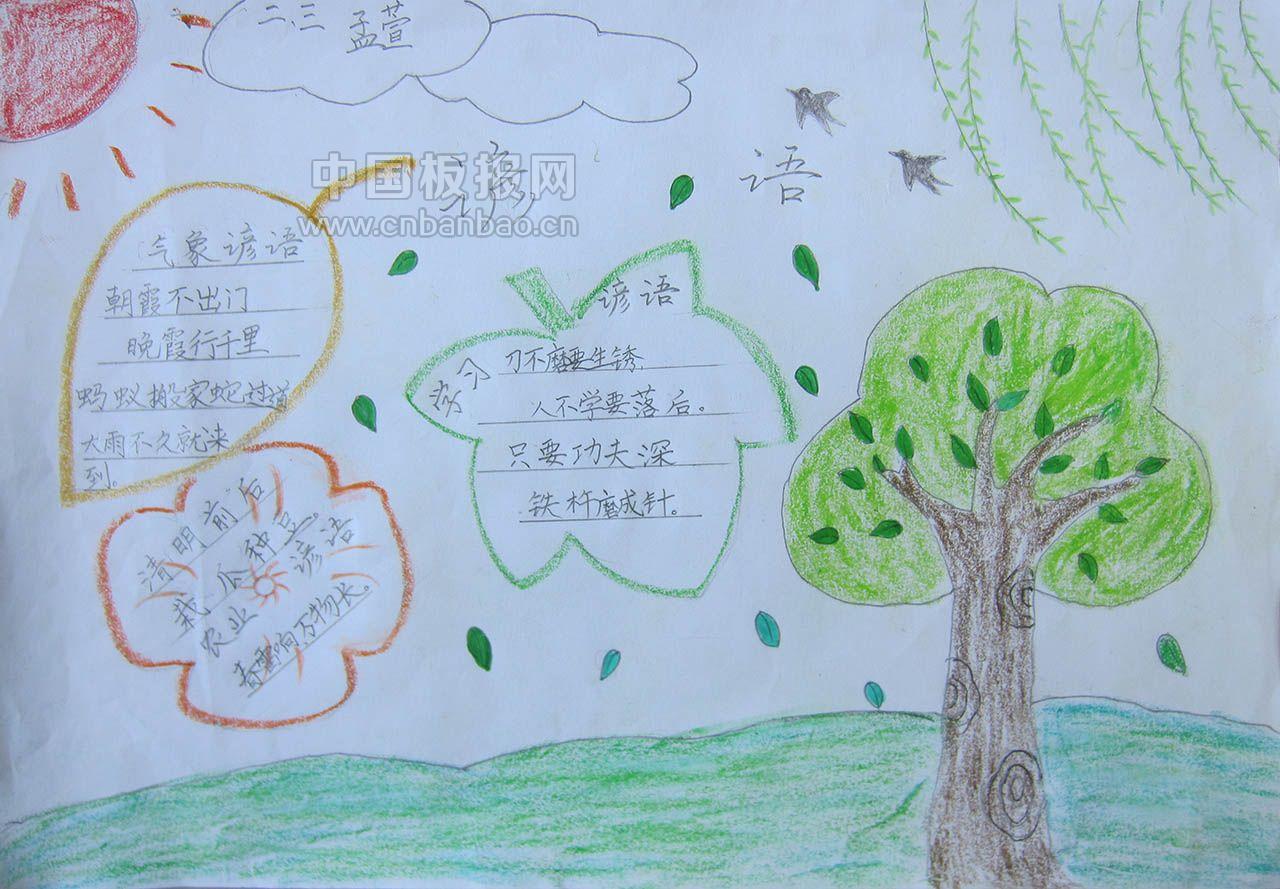 二、三 孟萱
中国板报网
www.cnbanbao.cn
谚 语
气象谚语
朝霞不出门
晚霞行千里
蚂蚁搬家蛇过道
大雨不久就来
到。
谚语
刀不磨要生锈,
人不学要落后。
只要功夫深
铁杵磨成针。
清明前后
栽瓜种豆。
农业谚语
春雷响万物长。